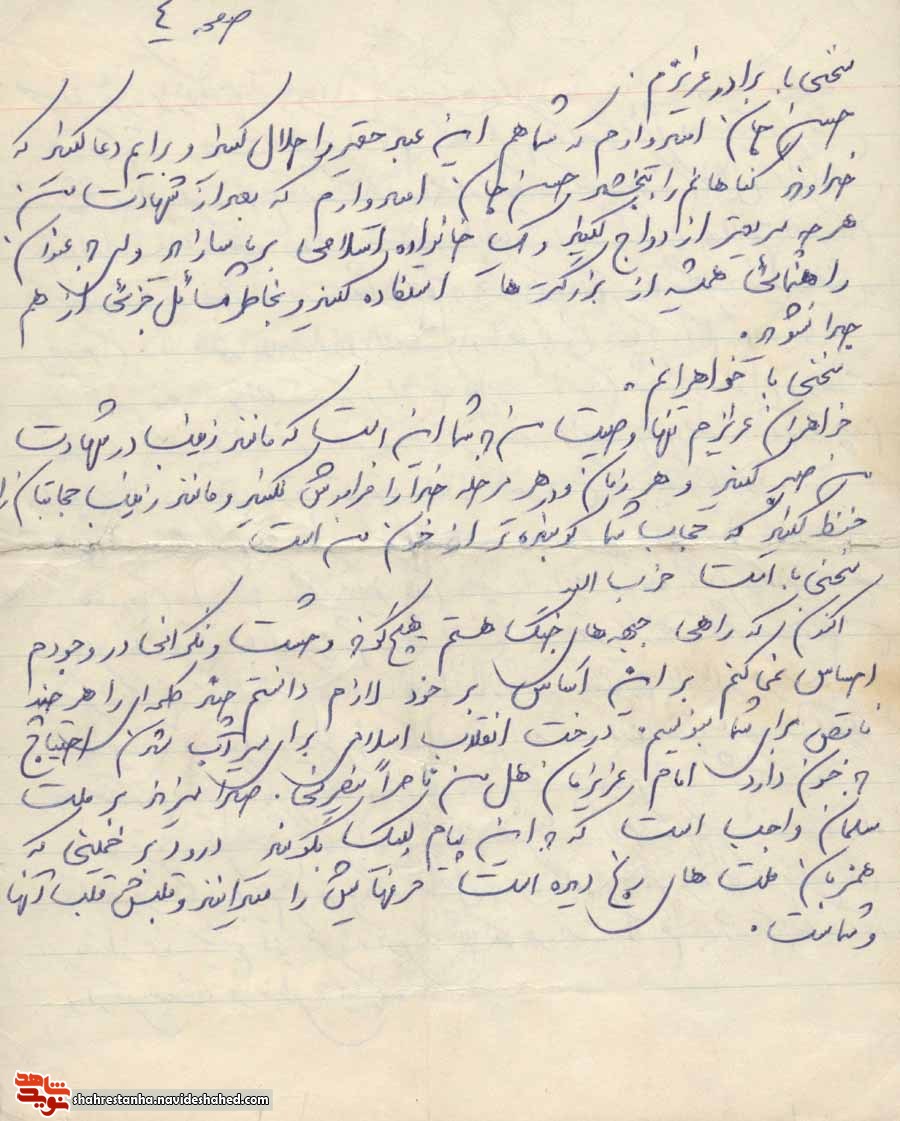 صفحه ٤
سخنی با برادر عزیزم.
حسن جان امیدوارم که شما هم این عبد حقیر را حلال کنید و برایم دعا کنید که
خداوند گناهانم را ببخشد حسن جان امیدوارم که بعد از شهادت من
هر چه سریعتر ازدواج کنید و یک خانواده اسلامی برپا سازید ولی به عنوان
راهنمائی همیشه از بزرگترها استفاده کنید و بخاطر مسائل جزئی از هم
جدا نشوید.
سخنی با خواهرانم.
خواهران عزیزم تنها وصیت من به شما این است که مانند زینب در شهادت
من صبر کنید و هر زمان و در هر مرحله خدا را فراموش نکنید و مانند زینب حجابتان را
حفظ کنید که حجاب شما کوبنده تر از خون من است
سخنی با امت حزب الله
اکنون که راهی جبهه های جنگ هستم هیچ گونه وحشت و نگرانی در وجودم
احساس نمی کنم بر این اساس بر خود لازم دانستم چند کلمه ای را هر چند
ناقص برای شما بنویسم. درخت انقلاب اسلامی برای سیراب شدن احتیاج
به خون دارد امام عزیزمان هل من ناصراً ینصرنی. صدا میزند بر ملت
مسلمان واجب است که به این پیام لبیک بگویند درود بر خمینی که
همزبان ملت های رنج دیده است و قلبش قلب آنها
و شماست.
شاهد
نوید
shahrestanha.navideshahed.com